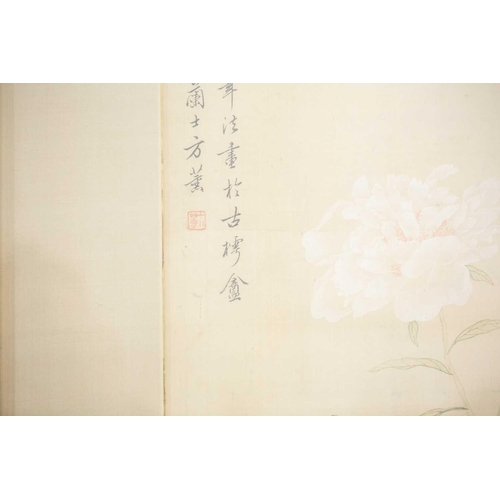 年法畫於古樗盦
蘭士方薰